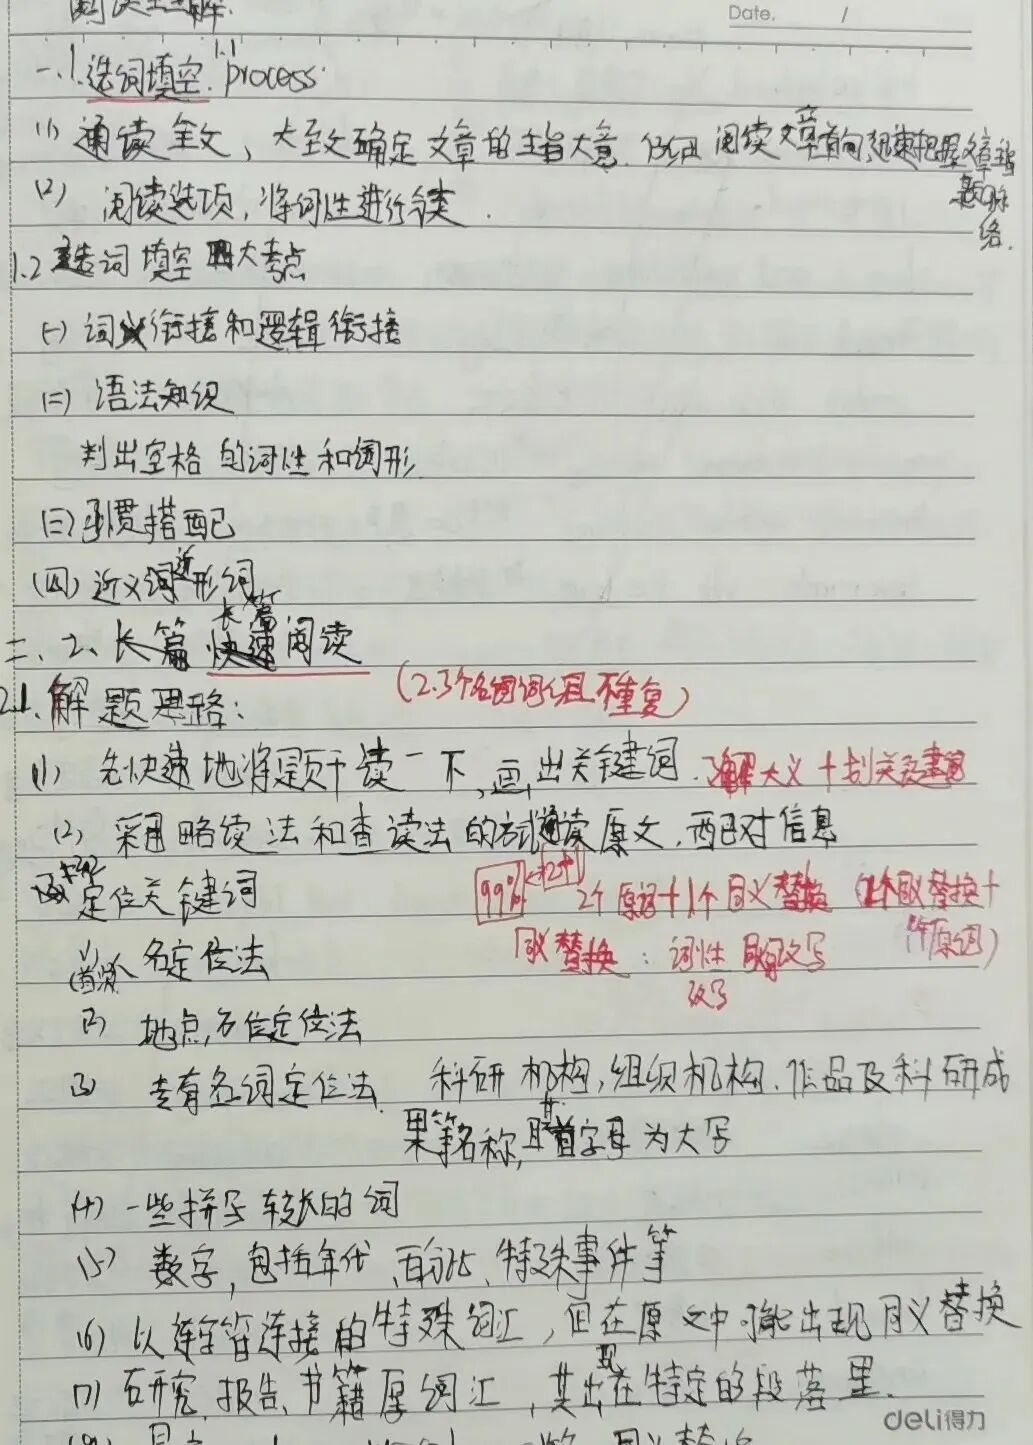 阅读理解.
Date. /
一.1.选词填空. 1.1 process.
(1) 通读全文，大致确定文章的主旨大意. 仔细阅读文章首句,迅速把握文章主旨脉络.
(2) 阅读选项，将词性进行分类.
1.2 选词填空四大考点
(一) 词义衔接和逻辑衔接
(二) 语法知识
判出空格的词性和词形
(三) 习惯搭配
(四) 近义词近形词
二、2、长篇阅读
2.1.解题思路： (2.3个名词词组不重复)
(1) 先快速地将题干读一下，画出关键词. 了解大义+划关键词
(2) 采用略读法和查读法的方式通读原文，匹配对信息
定位关键词 99% ← 2+1 2个原词+1个同义替换 (2个同义替换+1个原词)
(1) 人名定位法 (首次) 同义替换：词性改写
(2) 地点,方位定位法
(3) 专有名词定位法. 科研机构,组织机构、作品及科研成
果等名称，且首字母为大写
(4) 一些拼写较长的词
(5) 数字，包括年代、百分比、特殊事件等
(6) 以连字符连接的特殊词汇，但在原文中可能出现同义替换
(7) 研究、报告、书籍类词汇，其出现在特定的段落里.
deli得力